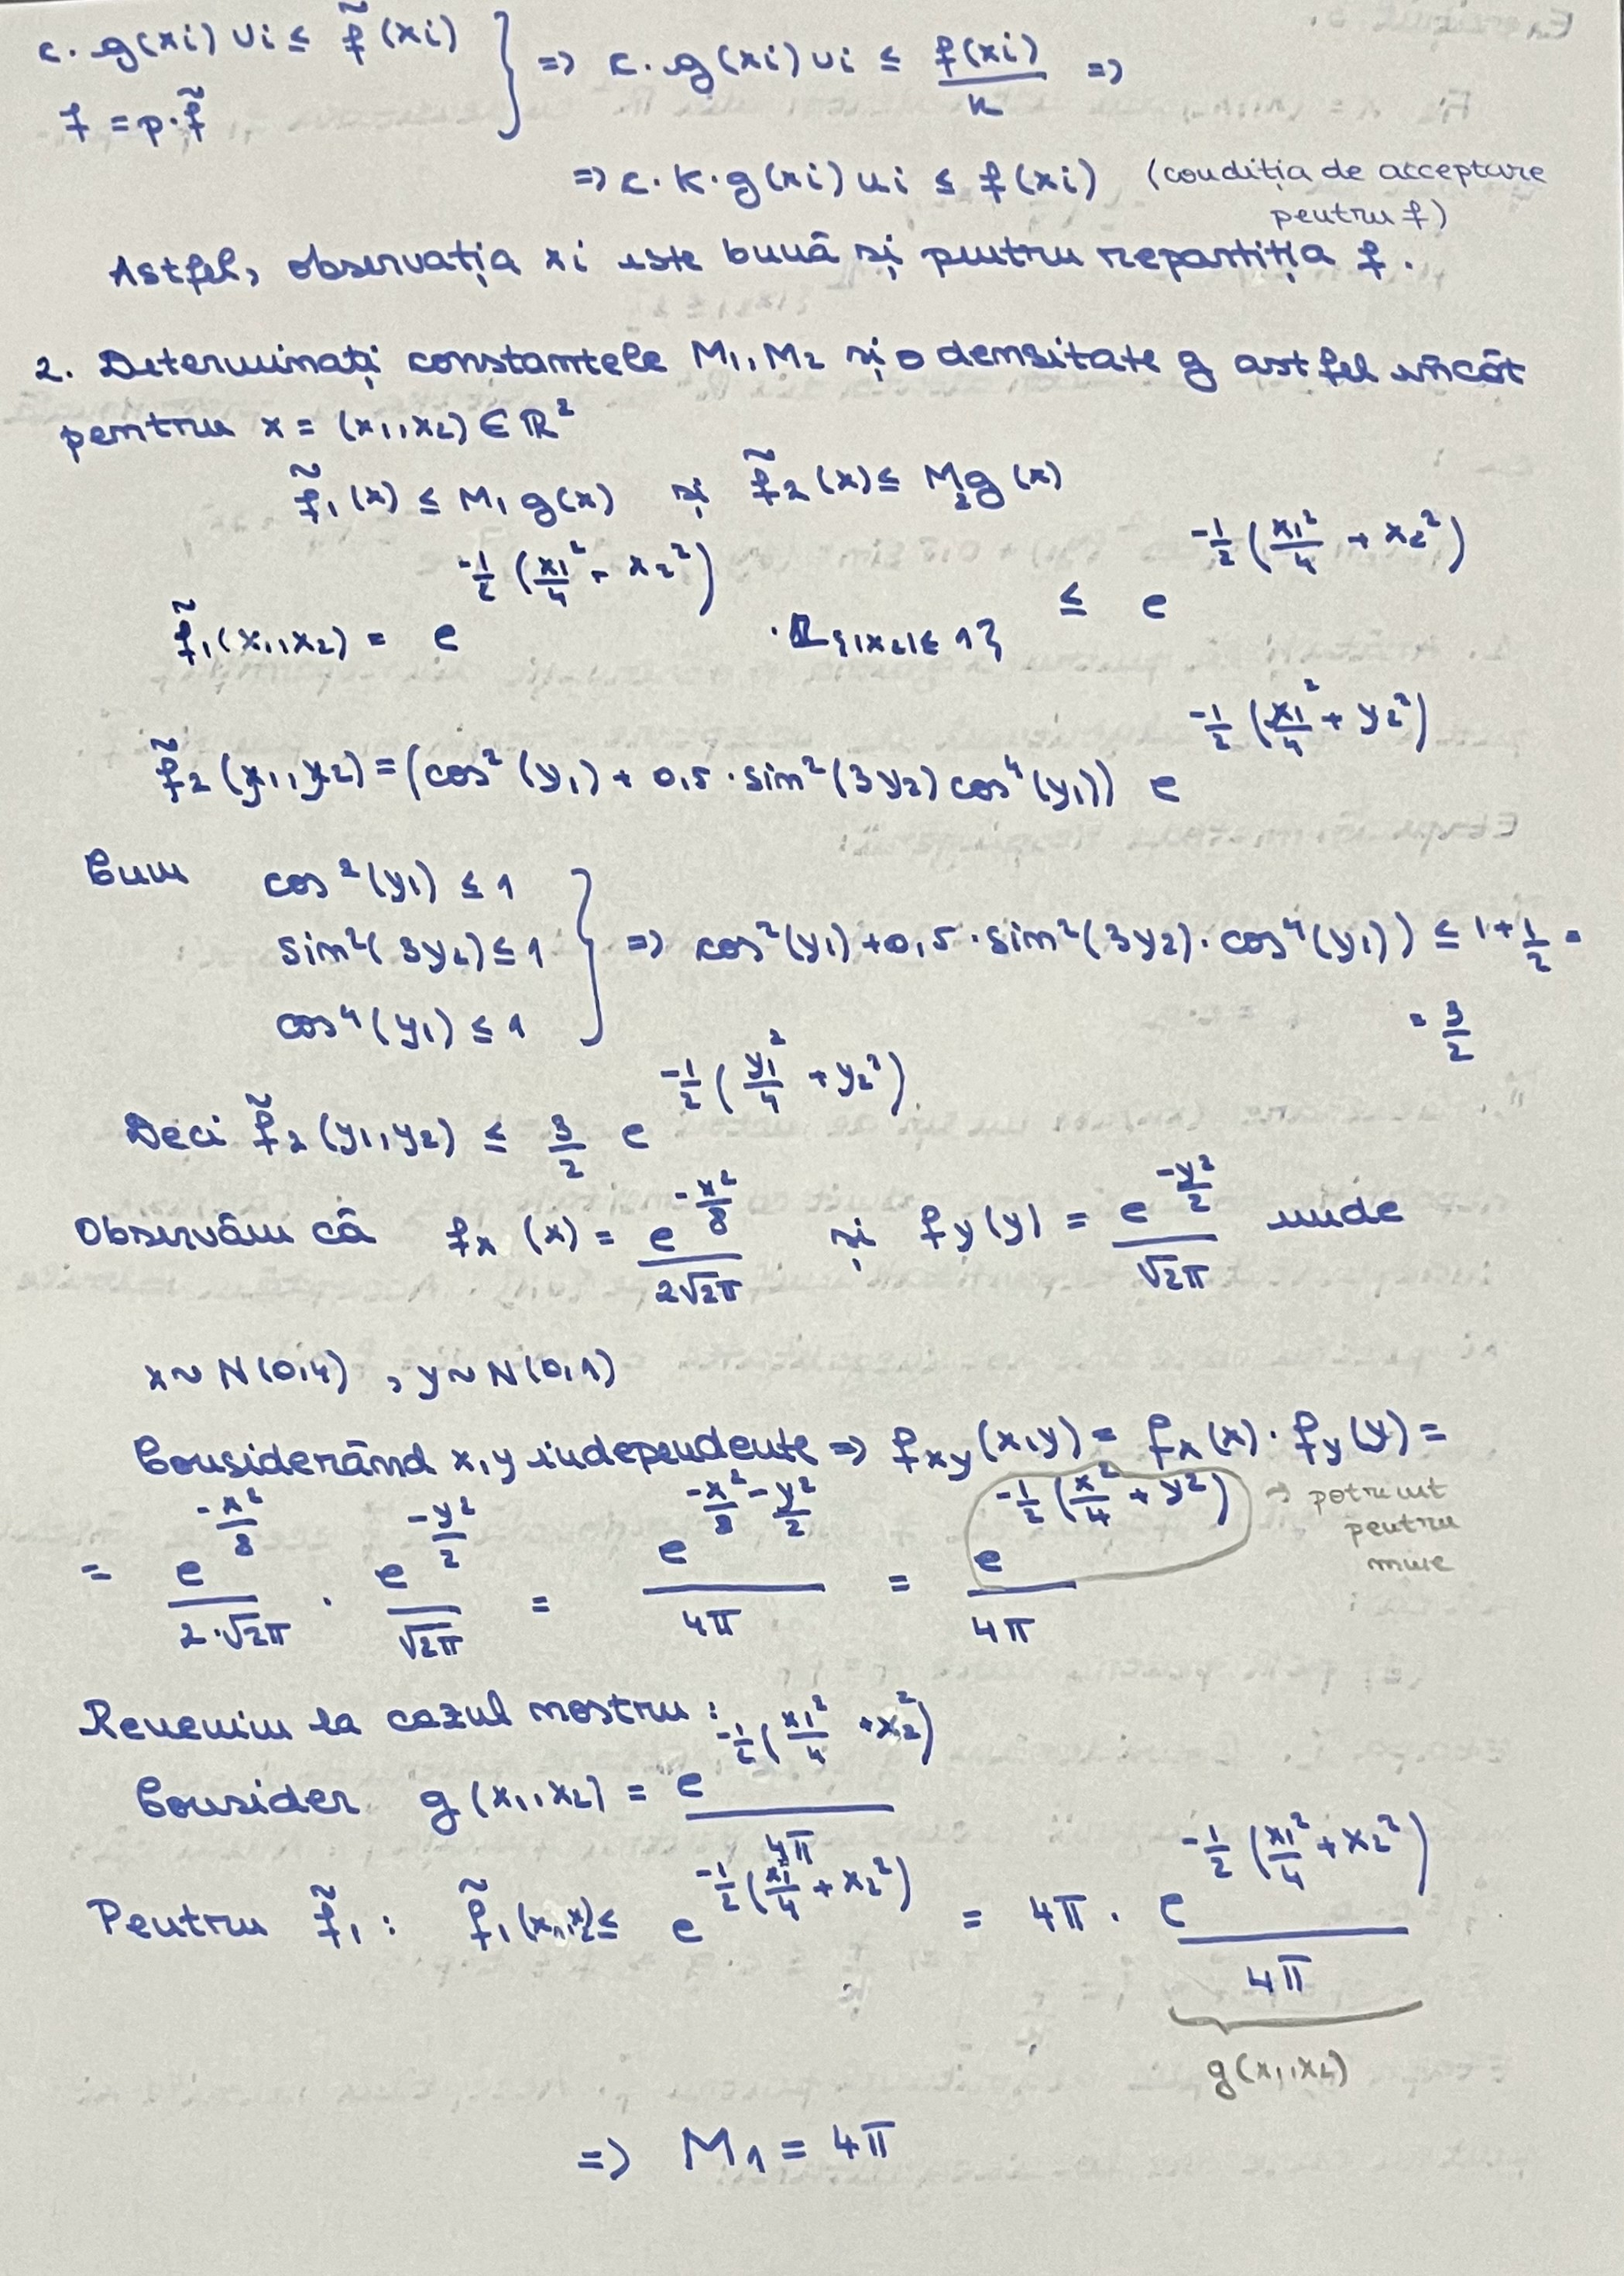 c. g(xi) ui ≤ f̃(xi) } => c. g(xi) ui ≤ f(xi)/k =>
f = p·f̃
=> c·k·g(xi) ui ≤ f(xi) (condiția de acceptare
pentru f)
Astfel, observația xi este bună și pentru repartiția f.
2. Determinați constantele M1, M2 și o densitate g astfel încât
pentru x = (x1, x2) ∈ ℝ²
f̃1(x) ≤ M1 g(x) și f̃2(x) ≤ M2 g(x)
f̃1(x1, x2) = e^{-1/2 (x1²/4 - x2²)} · 𝟙{|x2| ≤ 1} ≤ e^{-1/2 (x1²/4 + x2²)}
f̃2(y1, y2) = (cos²(y1) + 0,5·sin²(3y2) cos⁴(y1)) e^{-1/2 (x1²/4 + y2²)}
Cum cos²(y1) ≤ 1
sin²(3y2) ≤ 1 } => cos²(y1) + 0,5·sin²(3y2)·cos⁴(y1)) ≤ 1 + 1/2 =
cos⁴(y1) ≤ 1
= 3/2
Deci f̃2(y1, y2) ≤ 3/2 e^{-1/2 (y1²/4 + y2²)}
Observăm că fx(x) = e^{-x²/8} / 2√2π și fy(y) = e^{-y²/2} / √2π unde
x ~ N(0,4) , y ~ N(0,1)
Considerând x, y independente => fxy(x,y) = fx(x) · fy(y) =
= e^{-x²/8} / 2·√2π · e^{-y²/2} / √2π = e^{-x²/8 - y²/2} / 4π = e^{-1/2 (x²/4 + y²)} / 4π → potrivit
pentru
mine
Revenim la cazul nostru:
Consider g(x1, x2) = e^{-1/2 (x1²/4 + x2²)} / 4π
Pentru f̃1: f̃1(x1, x2) ≤ e^{-1/2 (x1²/4 + x2²)} = 4π · e^{-1/2 (x1²/4 + x2²)} / 4π
g(x1, x2)
=> M1 = 4π